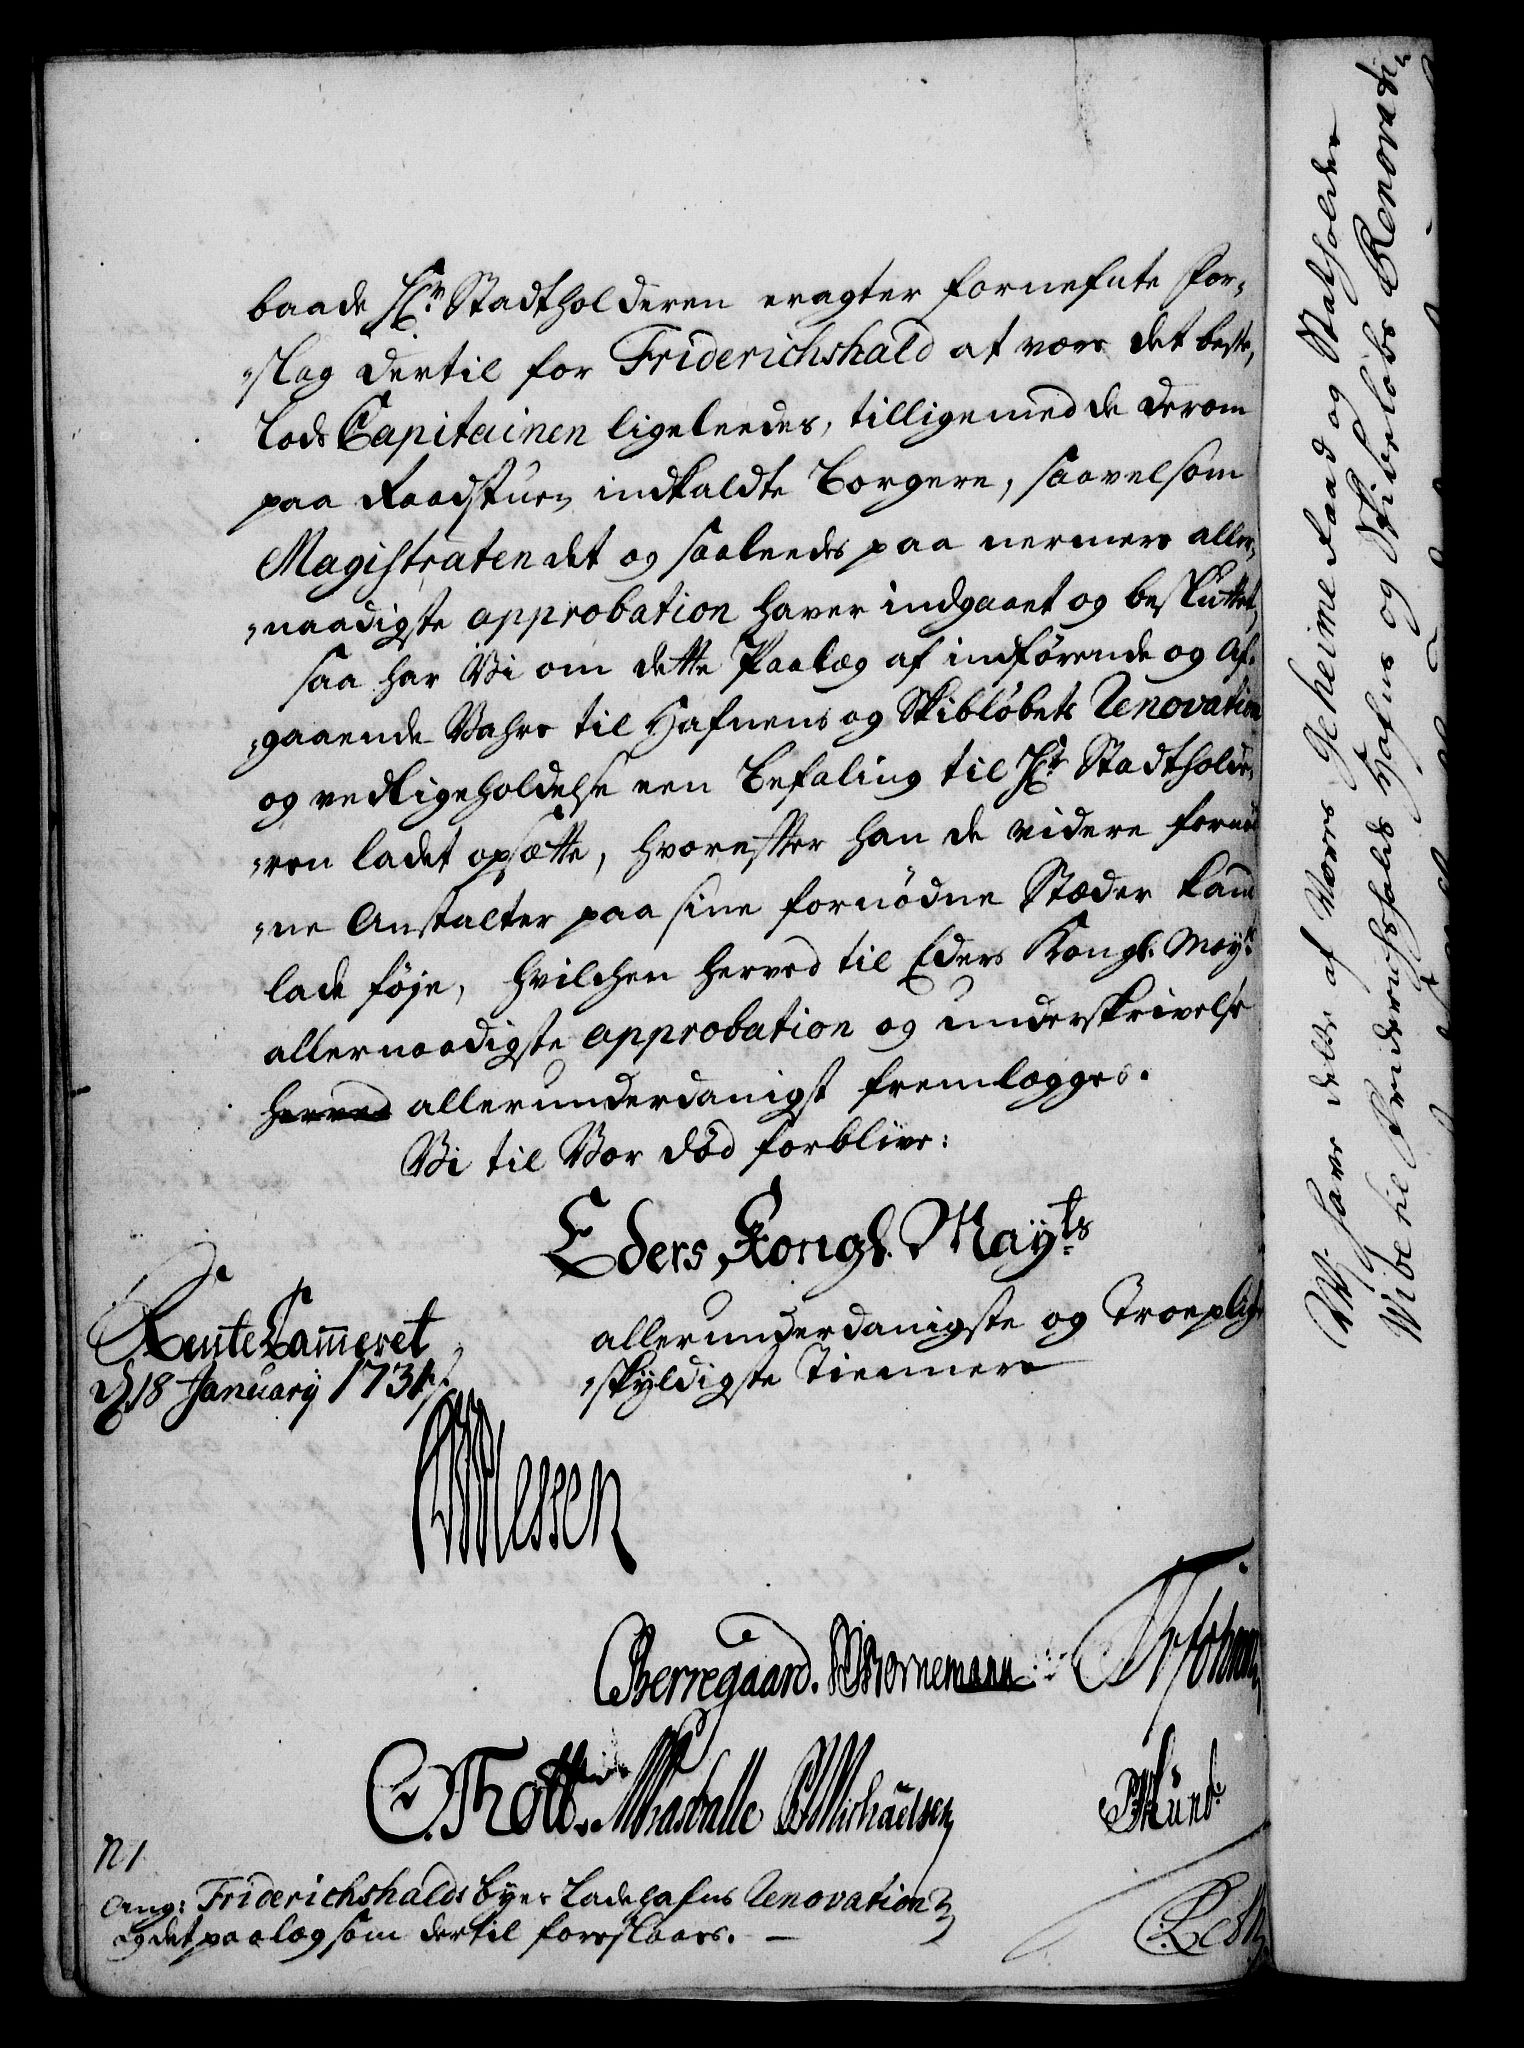 baade Hr. Stadtholderen eragter fornefnte For-
„slag dertil for Friderichshald at være det beste,
Lods Capitainen ligeleedes, tilligemed de derom
paa Raadstuen indkaldte Borgere, saavelsom
Magistraten det og saaleedes paa nermere aller-
„naadigste approbation haver indgaaet og besluttet,
saa har Vi om dette Paalæg af indførende og Af-
„gaaende Vahre til Hafnens og Skibløbets Renovation
og vedligeholdelse een Befaling til Hr. Stadtholde-
„ren ladet opsætte, hvorefter han de videre fornød
„ne Anstalter paa sine fornødne Stæder kand
lade føje, hvilchen herved til Eders Kongl. Mayts
allernaadigste approbation og underskrivelse
herved allerunderdanigst fremlægges.
Vi til Vor død forblive:
Eders Kongl. Mayts
allerunderdanigste og Troepligt
„skyldigste Tiennere
RenteCammeret
d. 18 January 1731
CAvPlessen
CBerregaard. WBornemann.
O Thott. Krabbe Michaelsen
N 1
Ang: Friderichshalds byes Ladehafns Renovation
og det paalæg som dertil foreslaaes.
Vi have dette af Vores Geheime Raad og Statholder
Wibe til Friderichshalds Hafns og Skibeløbs Renovati-